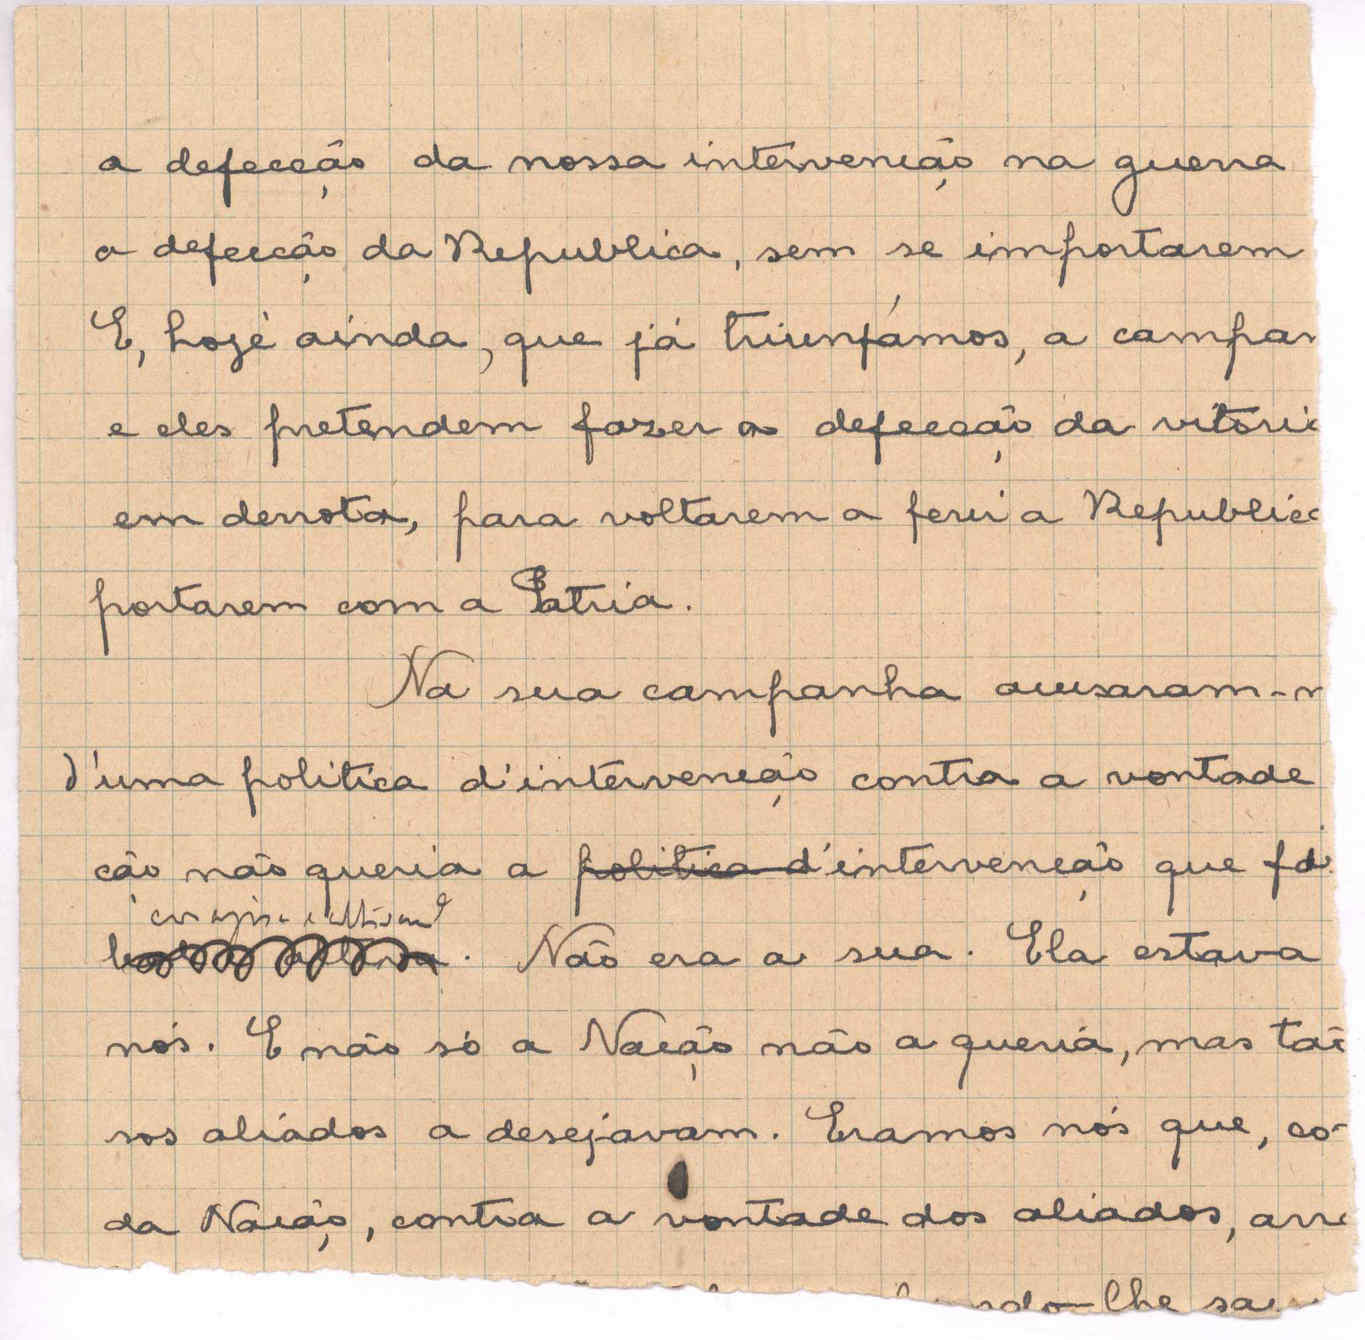 a defecção da nossa intervenção na guerra
a defecção da Republica, sem se importarem
E, hoje ainda, que já triunfámos, a campan
e eles pretendem fazer a defecção da vitóri
em derrota, para voltarem a ferir a Republica
portarem com a Patria.
Na sua campanha acusaram-n
d'uma politica d'intervenção contra a vontade
ção não queria a politica d'intervenção que foi
Não era a sua. Ela estava
nós. E não só a Nação não a queria, mas tam
sos aliados a desejavam. Eramos nós que, co
da Nação, contra a vontade dos aliados, arra
ndo-lhe sa